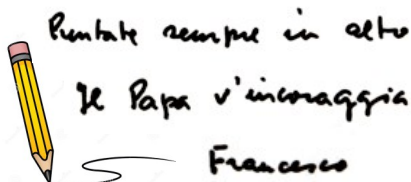 Puntate sempre in alto
Il Papa v'incoraggia
Francesco